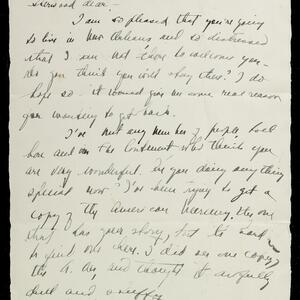 Sherwood dear -
I am so pleased that you're going
to live in New Orleans and so distressed
that I am not there to welcome you -
do you think you will stay there? I do
hope so - it would give me some real reason
for wanting to get back.
I've met any number of people both
here and on the Continent who think you
are very wonderful. Are you doing anything
special now? I've been trying to get a
copy of the American Mercury, the one
that has your story, but it's hard
to find one here. I did see one copy of
the A. M. and thought it awfully
dull and stuffy